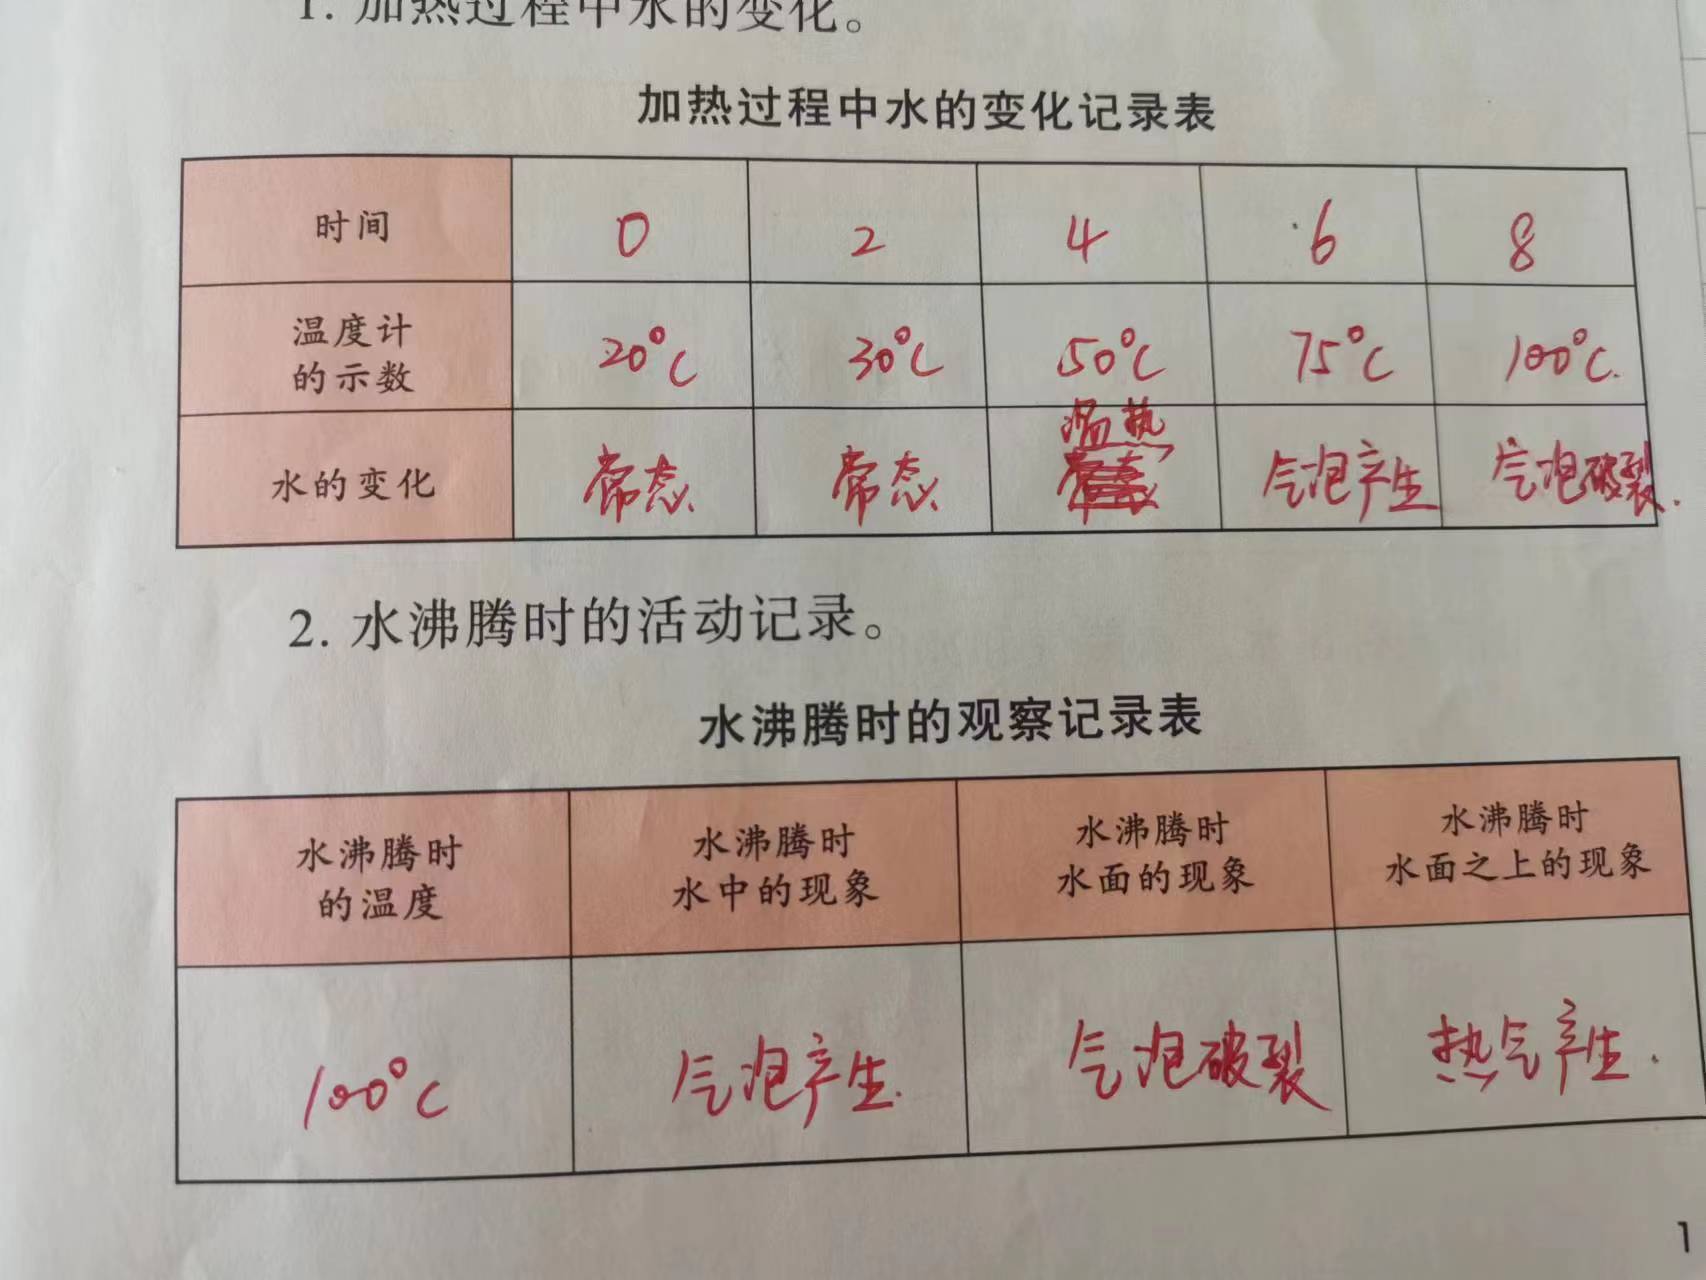 1. 加热过程中水的变化。
加热过程中水的变化记录表
时间 0 2 4 6 8
温度计
的示数 20°C 30°C 50°C 75°C 100°C.
温热
水的变化 常态 常态 常态 气泡产生 气泡破裂.
2. 水沸腾时的活动记录。
水沸腾时的观察记录表
水沸腾时 水沸腾时 水沸腾时 水沸腾时
的温度 水中的现象 水面的现象 水面之上的现象
100°C 气泡产生. 气泡破裂 热气产生.
1